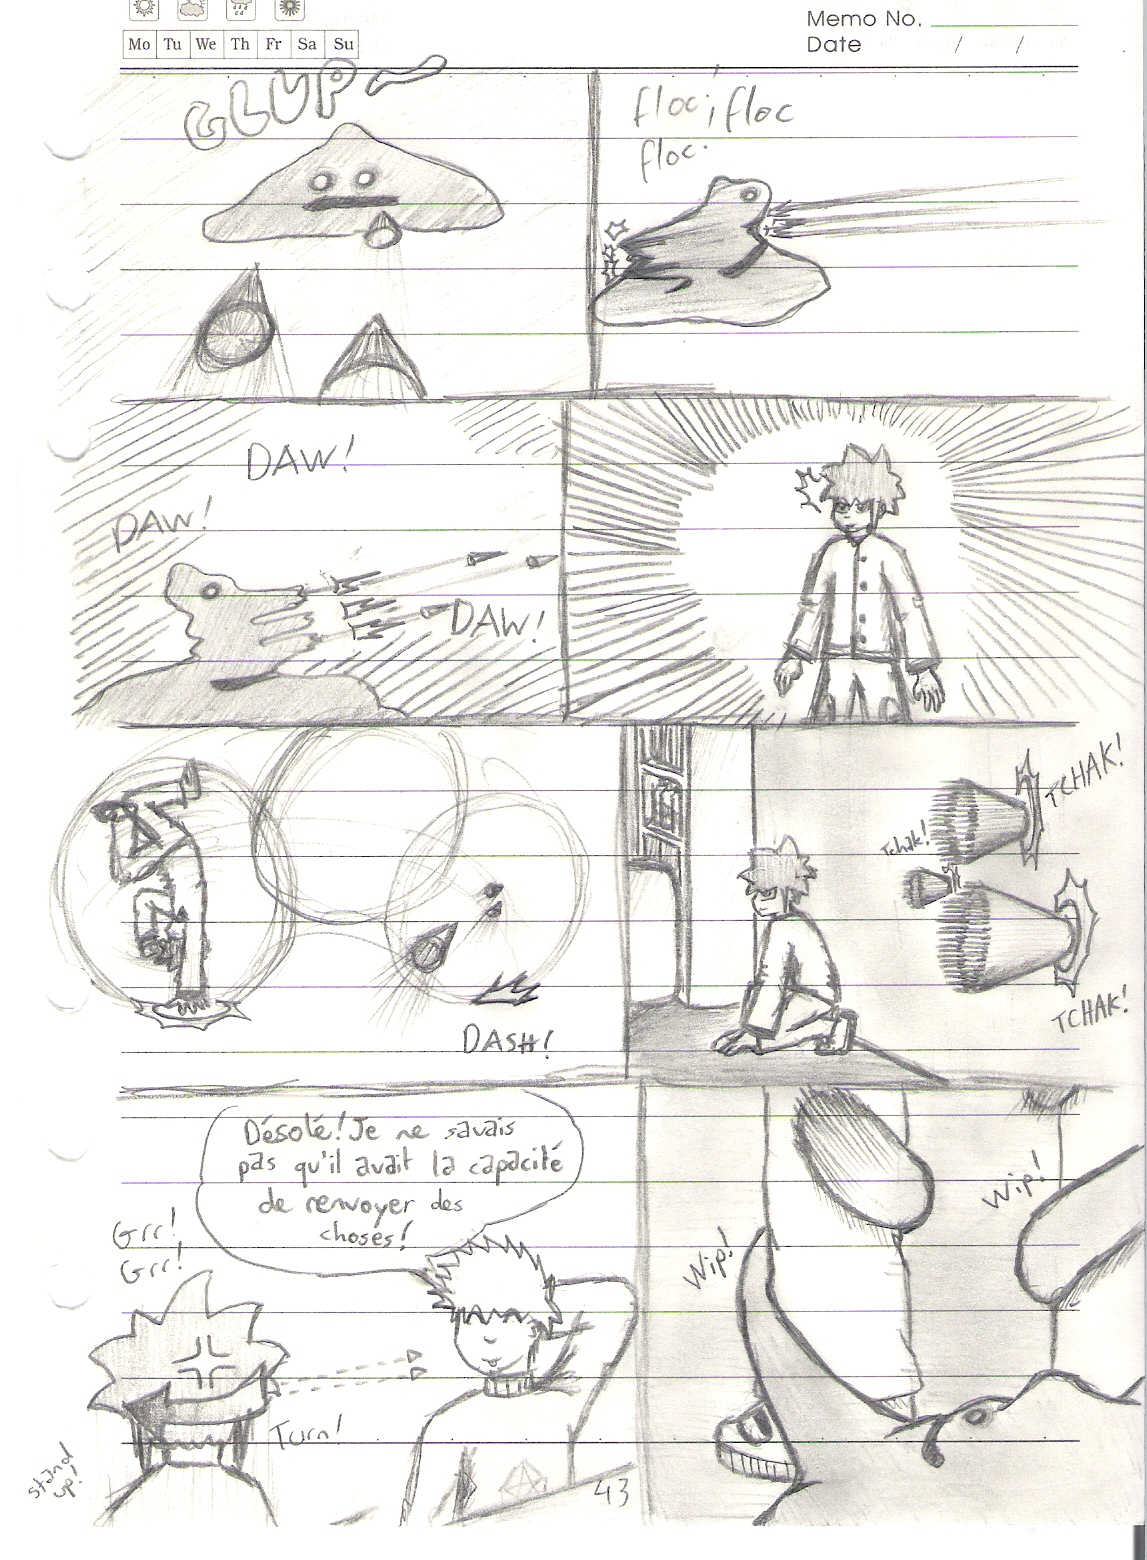 Memo No.
Date / /
Mo Tu We Th Fr Sa Su
GLUP
floc; floc
floc.
DAW!
DAW!
DAW!
TCHAK!
Tchak!
TCHAK!
DASH!
Désolé! Je ne savais
pas qu'il avait la capacité
de renvoyer des
choses!
Grr!
Grr!
Turn!
stand
up!
Wip!
Wip!
43